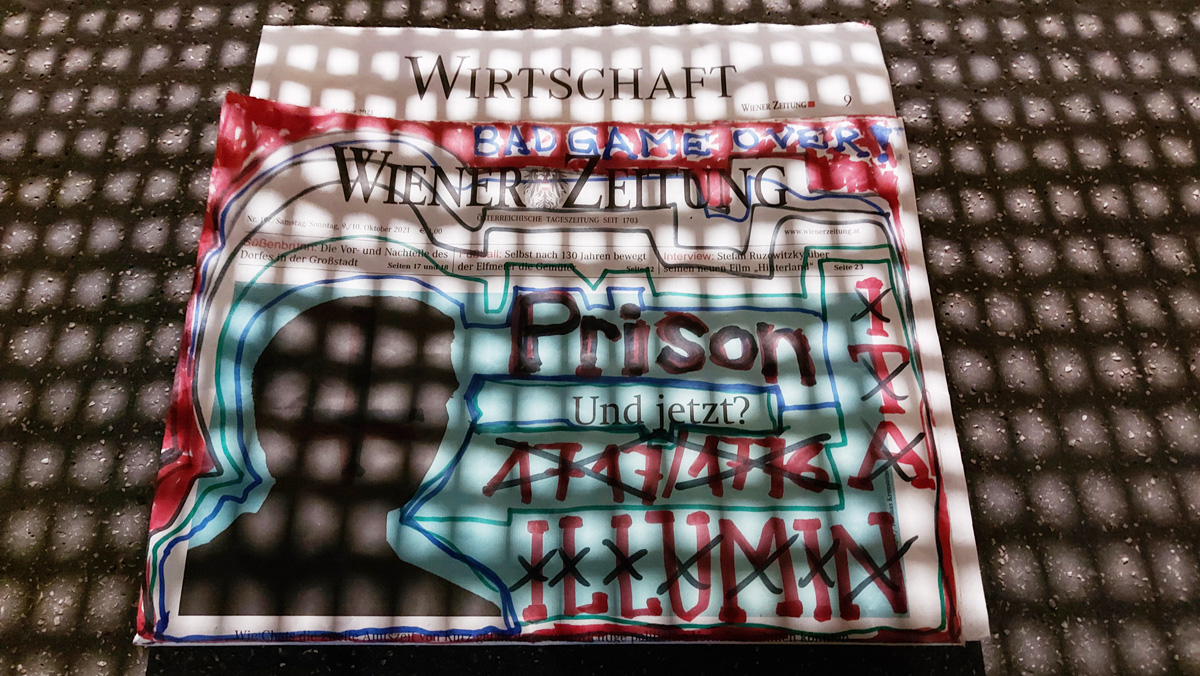 WIRTSCHAFT
WIENER ZEITUNG 9
BAD GAME OVER!
WIENER ZEITUNG
ÖSTERREICHISCHE TAGESZEITUNG SEIT 1703
Samstag/Sonntag, 9./10. Oktober 2021
www.wienerzeitung.at
Süßenbrunn: Die Vor- und Nachteile des
Dorfes in der Großstadt
Seiten 17 und 18
Selbst nach 130 Jahren bewegt
der Elfmeter die Gemüter
Interview: Stefan Ruzowitzky über
seinen neuen Film „Hinterland"
Seite 23
Prison
Und jetzt?
1717/1776
I
T
A
ILLUMIN